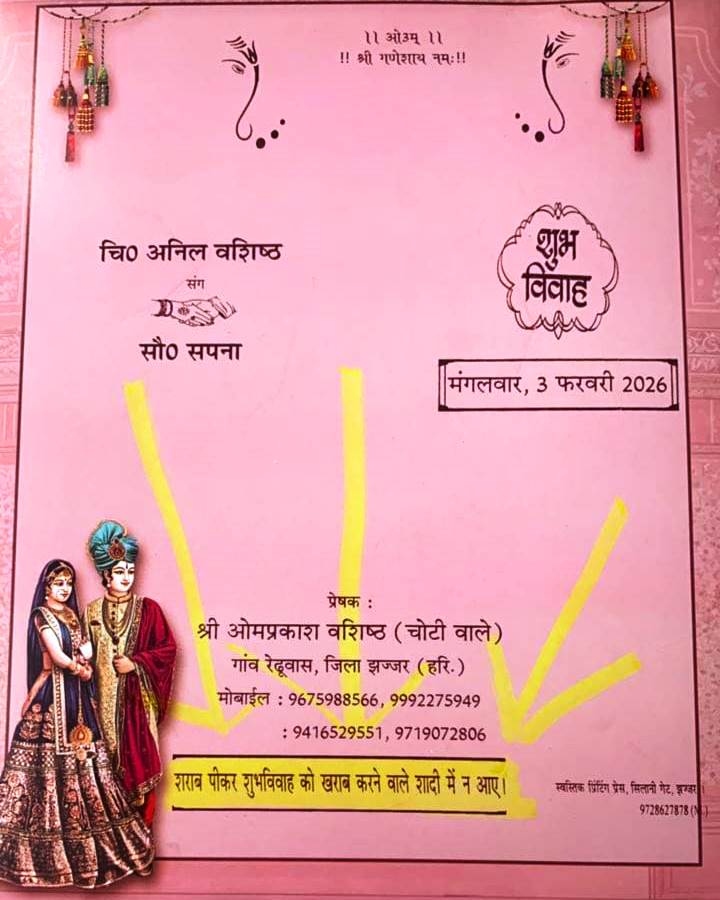 ।। ओ३म् ।।
!! श्री गणेशाय नमः!!
चि0 अनिल वशिष्ठ
संग
सौ0 सपना
शुभ
विवाह
मंगलवार, 3 फरवरी 2026
प्रेषक :
श्री ओमप्रकाश वशिष्ठ (चोटी वाले)
गांव रेढूवास, जिला झज्जर (हरि.)
मोबाईल : 9675988566, 9992275949
: 9416529551, 9719072806
शराब पीकर शुभविवाह को खराब करने वाले शादी में न आए।
स्वस्तिक प्रिंटिंग प्रेस, सिलानी गेट, झज्जर।
9728627878 (M.)